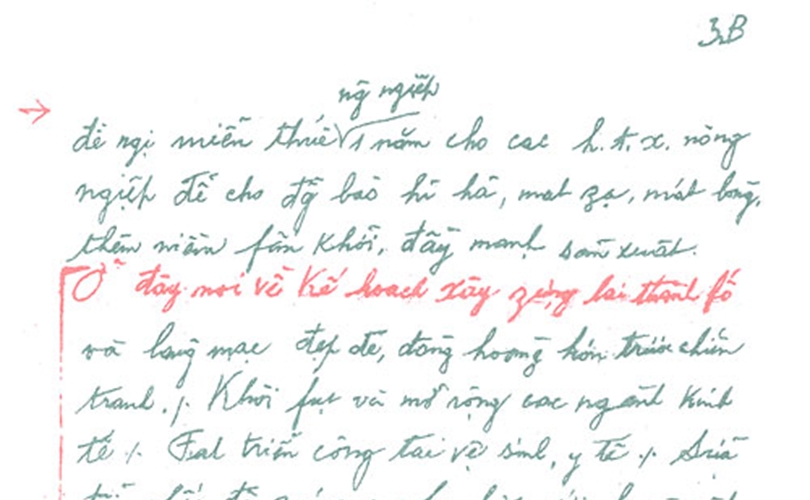 3B
ng̃ ngiệp
đề ngị miễn thuế √ 1 năm cho các h.t.x. nông
ngiệp để cho đg̃ bào hỉ hả, mát zạ, mát lòng,
thêm niềm fấn khởi, đẩy mạnh sản xuất.
Ở đây nói về kế hoach xây zựng lại thành fố
và làng mạc đẹp đẽ, đàng hoàng hơn trước chiến
tranh./. Khôi fục và mở rộng các ngành kinh
tế ./. Fát triển công tác vệ sinh, y tế ./. Sửa